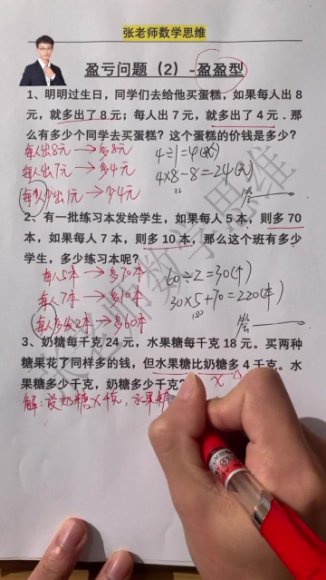 张老师数学思维
盈亏问题（2）-盈盈型
1、明明过生日，同学们去给他买蛋糕，如果每人出 8
元，就多出了 8 元；每人出 7 元，就多出了 4 元．那
么有多少个同学去买蛋糕？这个蛋糕的价钱是多少？
每人出8元 → 多8元
4÷1=4(名)
每人出7元 → 多4元
4×8-8=24(元)
每人少出1元 → 少4元
答
2、有一批练习本发给学生，如果每人 5 本，则多 70
本，如果每人 7 本，则多 10 本，那么这个班有多少
学生，多少练习本呢？
每人5本 → 多70本
60÷2=30(个)
每人7本 → 多10本
30×5+70=220(本)
150
每人多发2本 → 多60本
答
3、奶糖每千克 24 元，水果糖每千克 18 元。买两种
糖果花了同样多的钱，但水果糖比奶糖多 4 千克。水
果糖多少千克，奶糖多少千克？
解：设奶糖x千克，水果糖
张老师数学思维